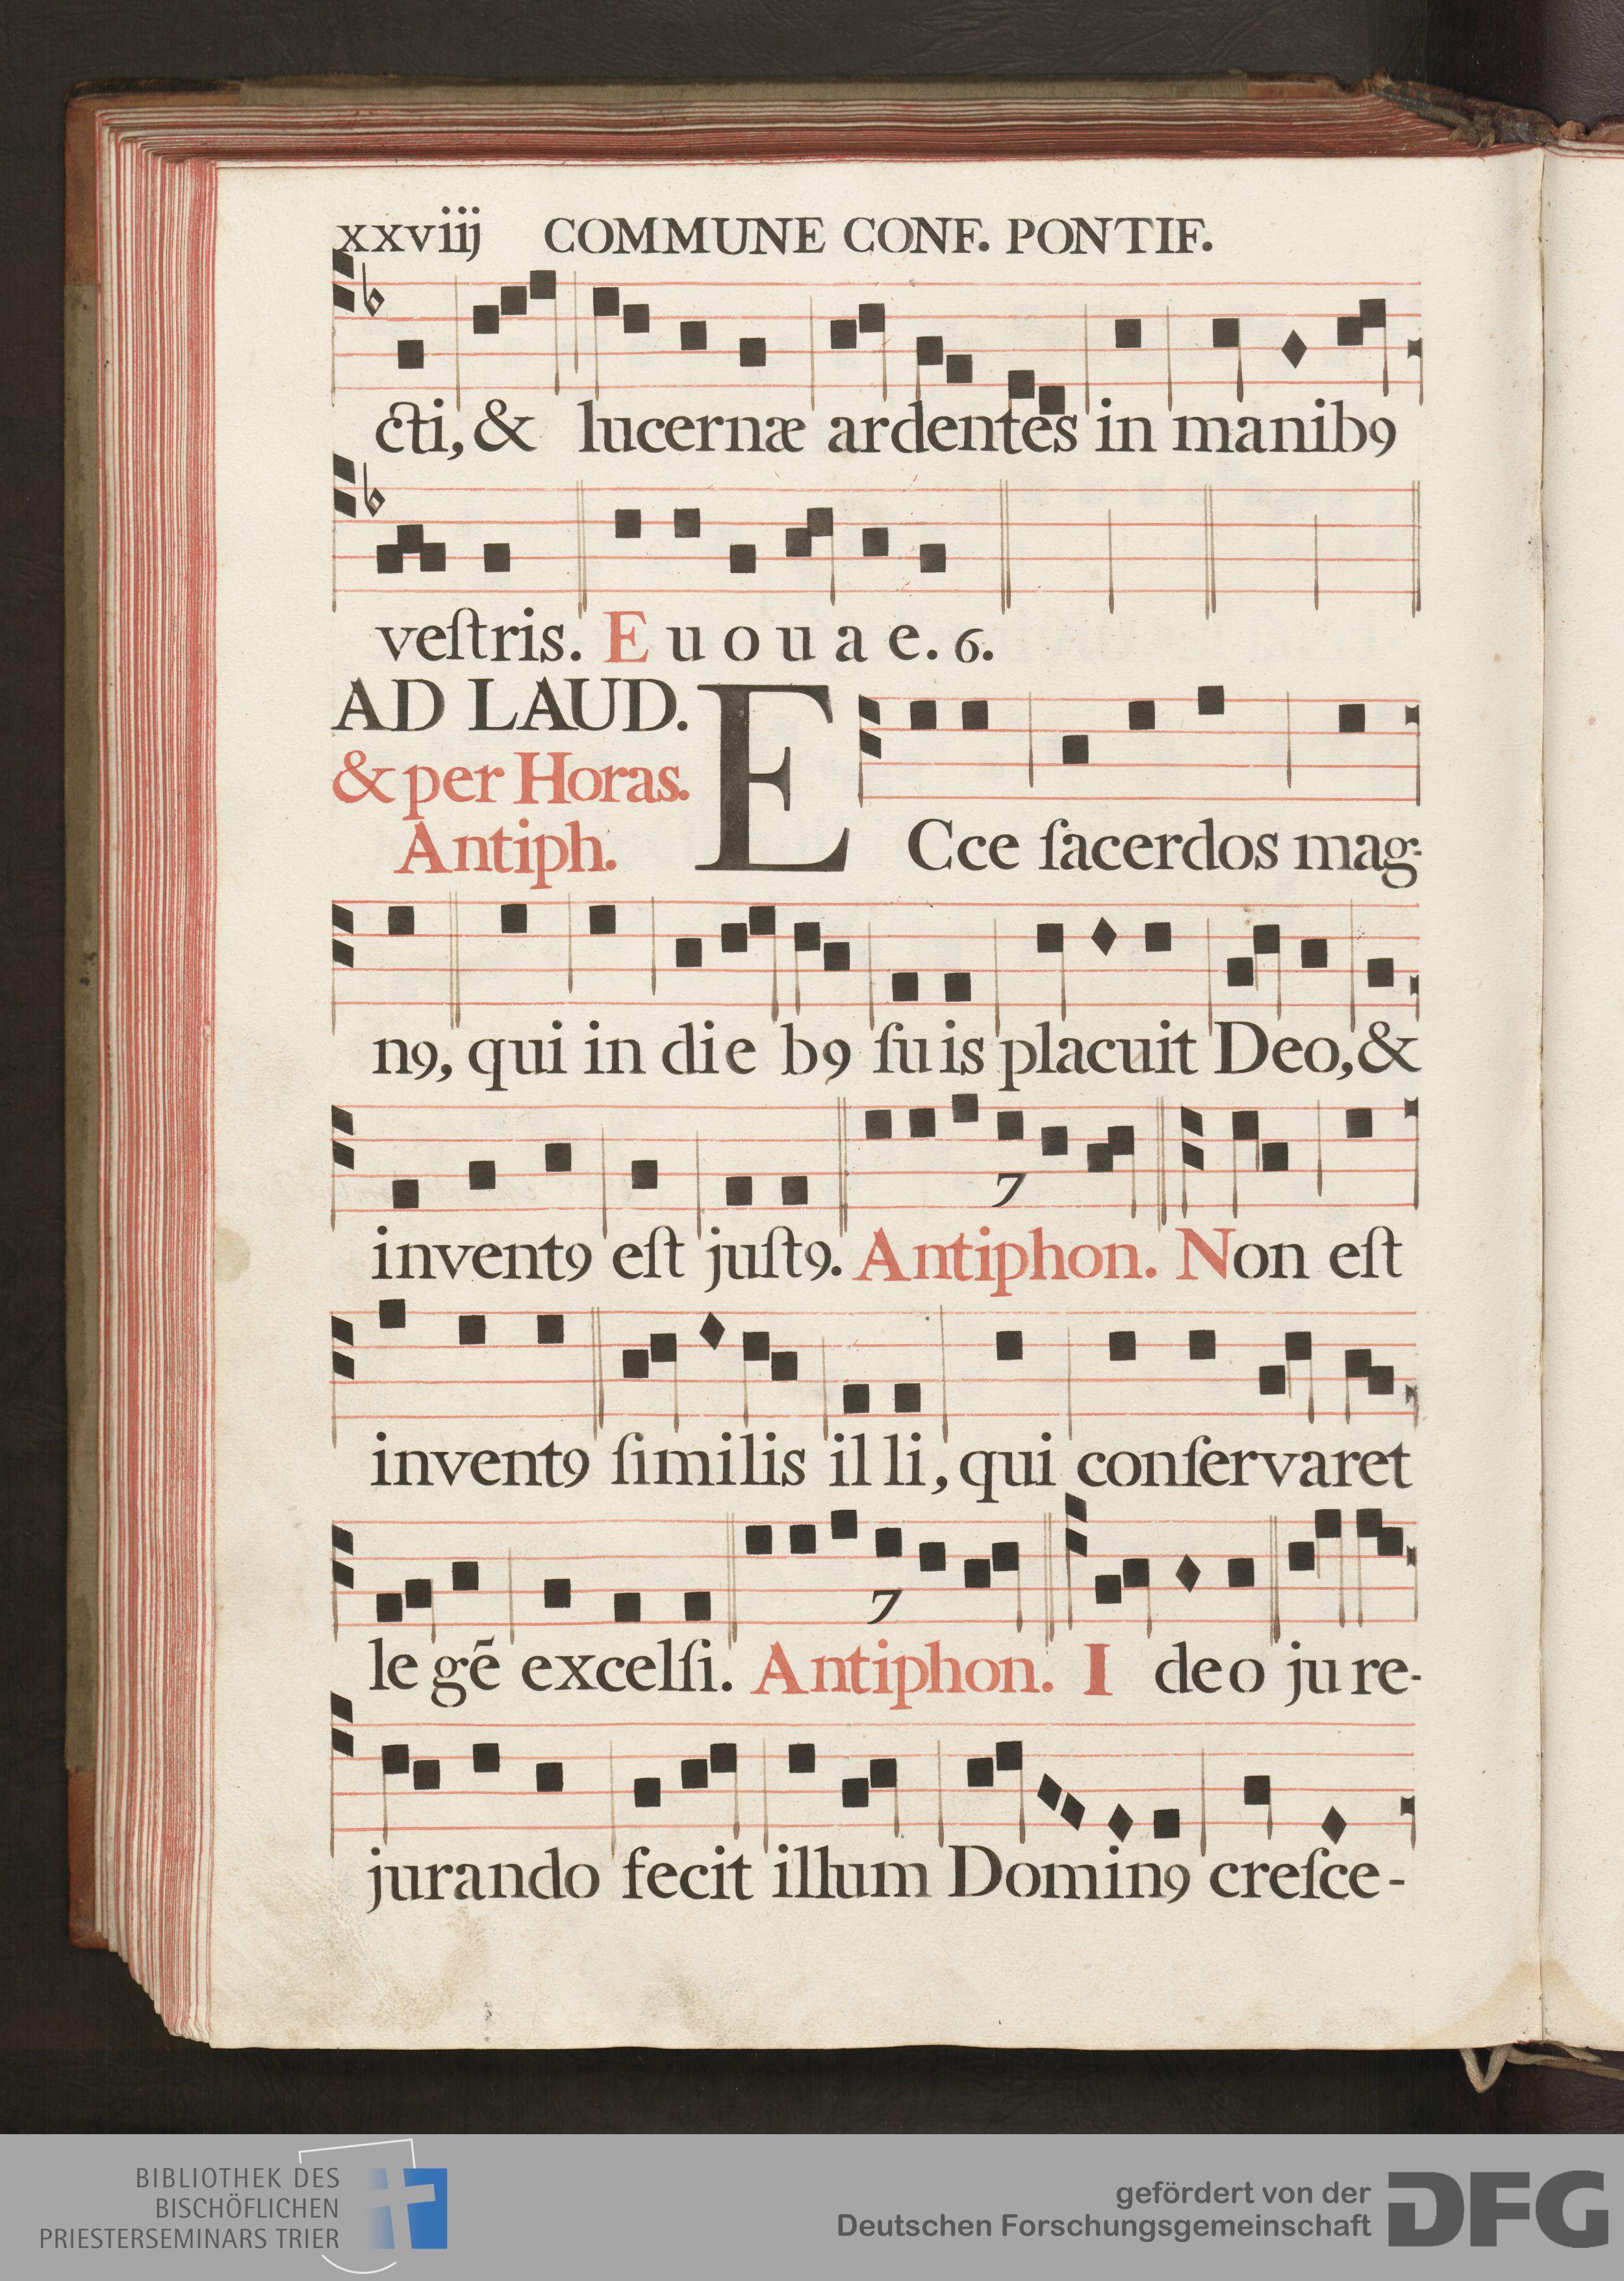 xxviij COMMUNE CONF. PONTIF.
cti, & lucernæ ardentes in manib9
veſtris. E u o u a e. 6.
AD LAUD.
& per Horas.
Antiph.
E Cce ſacerdos mag-
n9, qui in die b9 ſuis placuit Deo, &
7
invent9 eſt juſt9. Antiphon. Non eſt
invent9 ſimilis il li, qui conſervaret
7
le gē excelſi. Antiphon. I deo ju re-
jurando fecit illum Domin9 creſce-
BIBLIOTHEK DES
BISCHÖFLICHEN
PRIESTERSEMINARS TRIER
gefördert von der
Deutschen Forschungsgemeinschaft
DFG